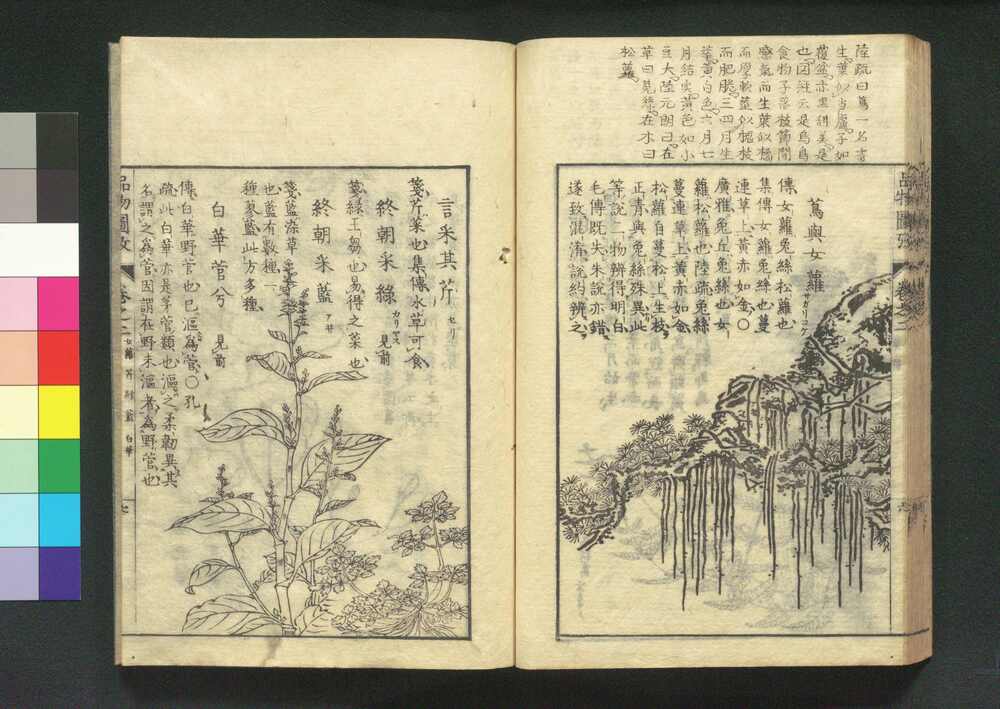 陸疏曰蔦一名寄
生葉似当盧子如
覆盆赤黒甜美是
也因註云是烏鳥
食物子落枝節間
感氣而生葉似橘
而厚軟莖似槐枝
而肥脆三四月生
華黄白色六月七
月結実黄色如小
豆大陸元朗曰在
草曰兎絲在木曰
松蘿
蔦與女蘿 サガリゴケ
傳女蘿兎絲松蘿也
集傳女蘿兎絲也蔓
連草上黄赤如金○
廣雅兎丘兎絲也女
蘿松蘿也陸疏兎絲
蔓連草上黄赤如金
松蘿自蔓松上生枝
正青與兎絲殊異此
等說二物辨得明白
毛傳既失朱說亦錯
遂致混淆說約辨之
品物圖攷
卷之二
言采其芹 セリ
箋芹菜也集傳水草可食
終朝采綠 カリヤス 見前
箋綠王芻也易得之菜也
終朝采藍 アヰ
箋藍染草
也藍有數種一
種蓼藍此方多種
白華菅兮 見前
傳白華野菅也已漚為菅○孔
疏此白華亦是茅菅類也漚之柔韌異其
名謂之為菅因謂在野未漚者為野菅也
品物圖攷
卷之二
女蘿 芹 綠 藍 白華
七